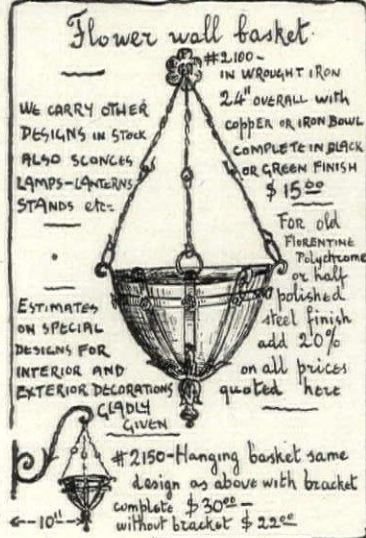 Flower wall basket.
#2100-
IN WROUGHT IRON
24" OVERALL with
COPPER OR IRON BOWL
COMPLETE IN BLACK
OR GREEN FINISH
$15.00
WE CARRY OTHER
DESIGNS IN STOCK
ALSO SCONCES
LAMPS-LANTERNS
STANDS etc-
FOR old
FLORENTINE
Polychrome
or half
polished
steel finish
add 20%
on all prices
quoted here
ESTIMATES
ON SPECIAL
DESIGNS FOR
INTERIOR AND
EXTERIOR DECORATIONS
GLADLY
GIVEN
#2150-Hanging basket same
design as above with bracket
complete $30.00-
without bracket $22.00
10"